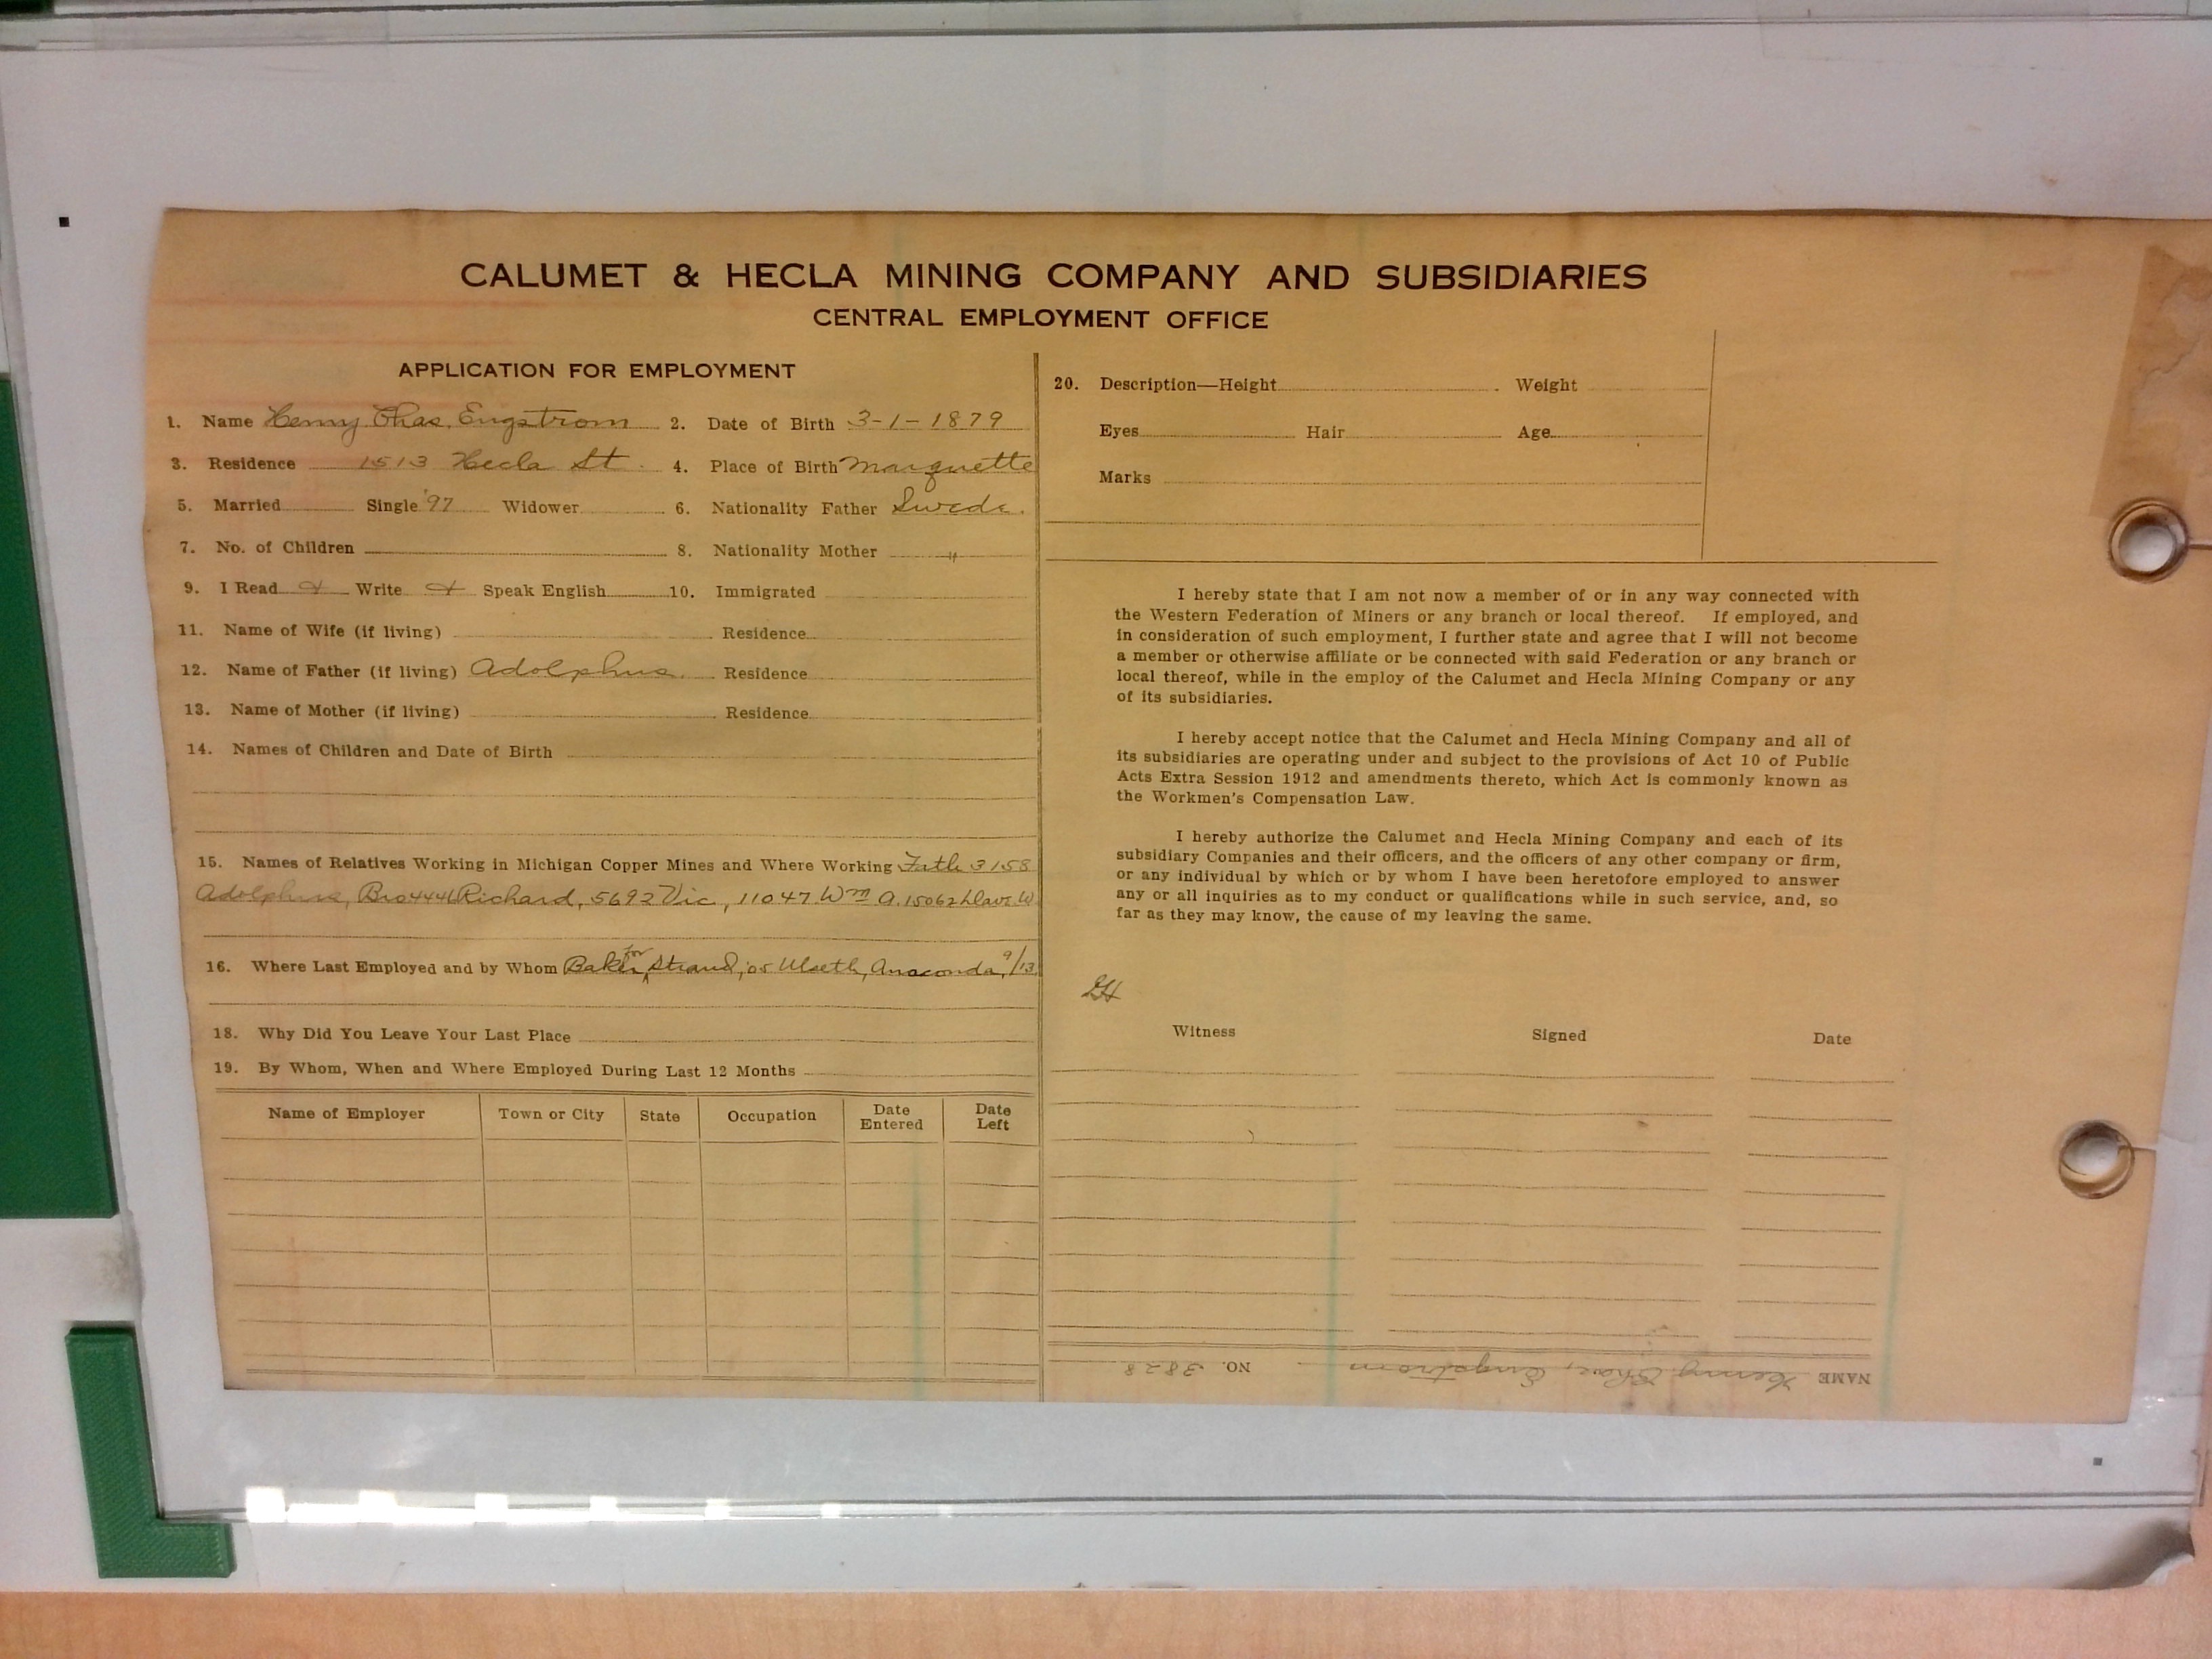 CALUMET & HECLA MINING COMPANY AND SUBSIDIARIES
CENTRAL EMPLOYMENT OFFICE
APPLICATION FOR EMPLOYMENT
1. Name Henry Chas. Engstrom 2. Date of Birth 3-1-1879
3. Residence 1513 Hecla St. 4. Place of Birth Marquette
5. Married Single '97 Widower 6. Nationality Father Swede.
7. No. of Children 8. Nationality Mother "
9. I Read Write Speak English 10. Immigrated
11. Name of Wife (if living) Residence
12. Name of Father (if living) Adolphus. Residence
13. Name of Mother (if living) Residence
14. Names of Children and Date of Birth
15. Names of Relatives Working in Michigan Copper Mines and Where Working Fath 3158
Adolphus, Bro 4441 Richard, 5692 Vic, 11047 Wm A. 15062 Dave W
16. Where Last Employed and by Whom Baker for Strand, '05 Anaconda, 9/13
18. Why Did You Leave Your Last Place
19. By Whom, When and Where Employed During Last 12 Months
Name of Employer Town or City State Occupation Date Entered Date Left
20. Description—Height Weight
Eyes Hair Age
Marks
I hereby state that I am not now a member of or in any way connected with
the Western Federation of Miners or any branch or local thereof. If employed, and
in consideration of such employment, I further state and agree that I will not become
a member or otherwise affiliate or be connected with said Federation or any branch or
local thereof, while in the employ of the Calumet and Hecla Mining Company or any
of its subsidiaries.
I hereby accept notice that the Calumet and Hecla Mining Company and all of
its subsidiaries are operating under and subject to the provisions of Act 10 of Public
Acts Extra Session 1912 and amendments thereto, which Act is commonly known as
the Workmen's Compensation Law.
I hereby authorize the Calumet and Hecla Mining Company and each of its
subsidiary Companies and their officers, and the officers of any other company or firm,
or any individual by which or by whom I have been heretofore employed to answer
any or all inquiries as to my conduct or qualifications while in such service, and, so
far as they may know, the cause of my leaving the same.
Witness Signed Date
NAME Henry Chas. Engstrom NO. 3828